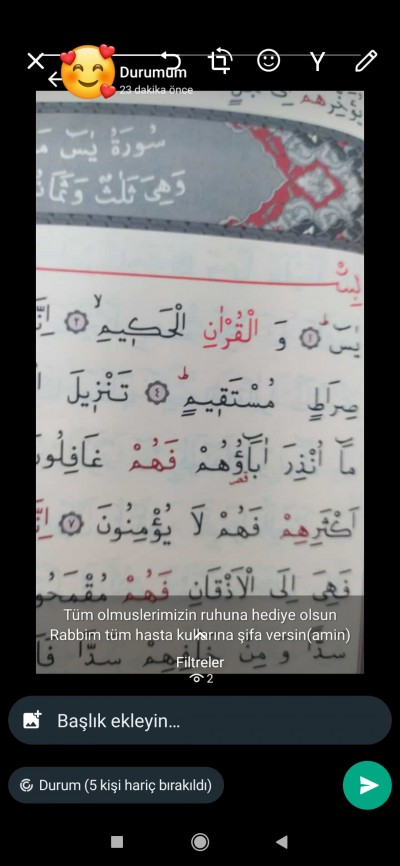 Durumum
23 dakika önce
Y
هم
سُورَةُ يٰسٓ
وَهِيَ ثَلٰثٌ وَثَمَانُ
يٰسٓ ﴿١﴾ وَ الْقُرْاٰنِ الْحَكٖيمِ ﴿٢﴾ اِنَّ
صِرَاطٍ مُسْتَقٖيمٍ ﴿٤﴾ تَنْزٖيلَ
مَٓا اُنْذِرَ اٰبَٓاؤُ۬هُمْ فَهُمْ غَافِلُونَ
اَكْثَرِهِمْ فَهُمْ لَا يُؤْمِنُونَ ﴿٧﴾ اِنَّا
فَهِيَ اِلَى الْاَذْقَانِ فَهُمْ مُقْمَحُو
Tüm olmuslerimizin ruhuna hediye olsun
Rabbim tüm hasta kullarına şifa versin(amin)
سَدًّا وَ مِنْ خَلْفِهِمْ سَدًّا فَا
Filtreler
2
Başlık ekleyin...
Durum (5 kişi hariç bırakıldı)